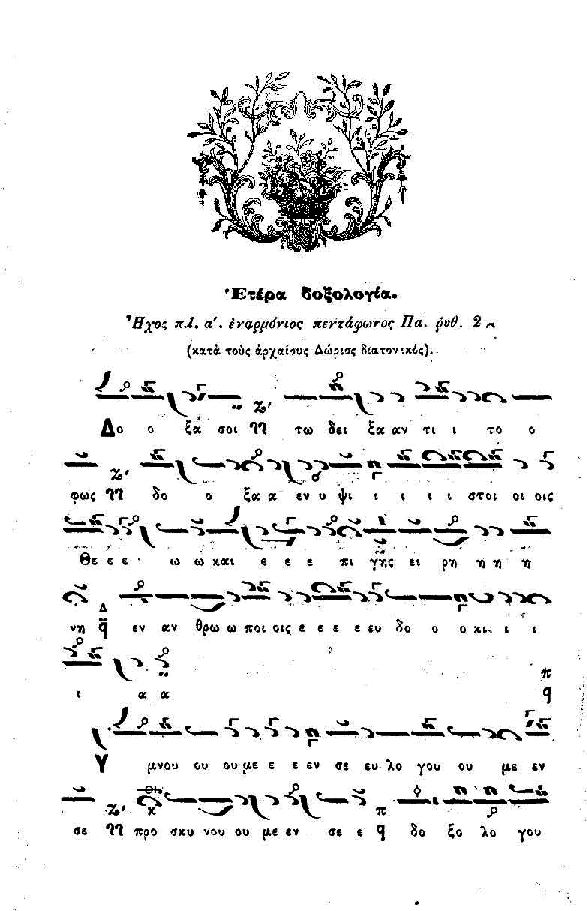 Ἑτέρα δοξολογία.
Ἦχος πλ. α΄. ἐναρμόνιος πεντάφωνος Πα. ῥυθ. 2
(κατὰ τοὺς ἀρχαίους Δώριος διατονικός).
Δο ο ξα σοι τω δει ξα αν τι ι το ο
φως δο ο ξα α εν υ ψι ι ι ι ι στοι οι οις
Θε ε ε ω ω και ε ε ε πι γης ει ρη η η η
νη εν αν θρω ω ποι οις ε ε ε ε ευ δο ο ο κι ι ι
ι α α
Υ μνου ου ου με ε ε εν σε ευ λο γου ου με εν
σε προ σκυ νου ου με εν σε ε δο ξο λο γου